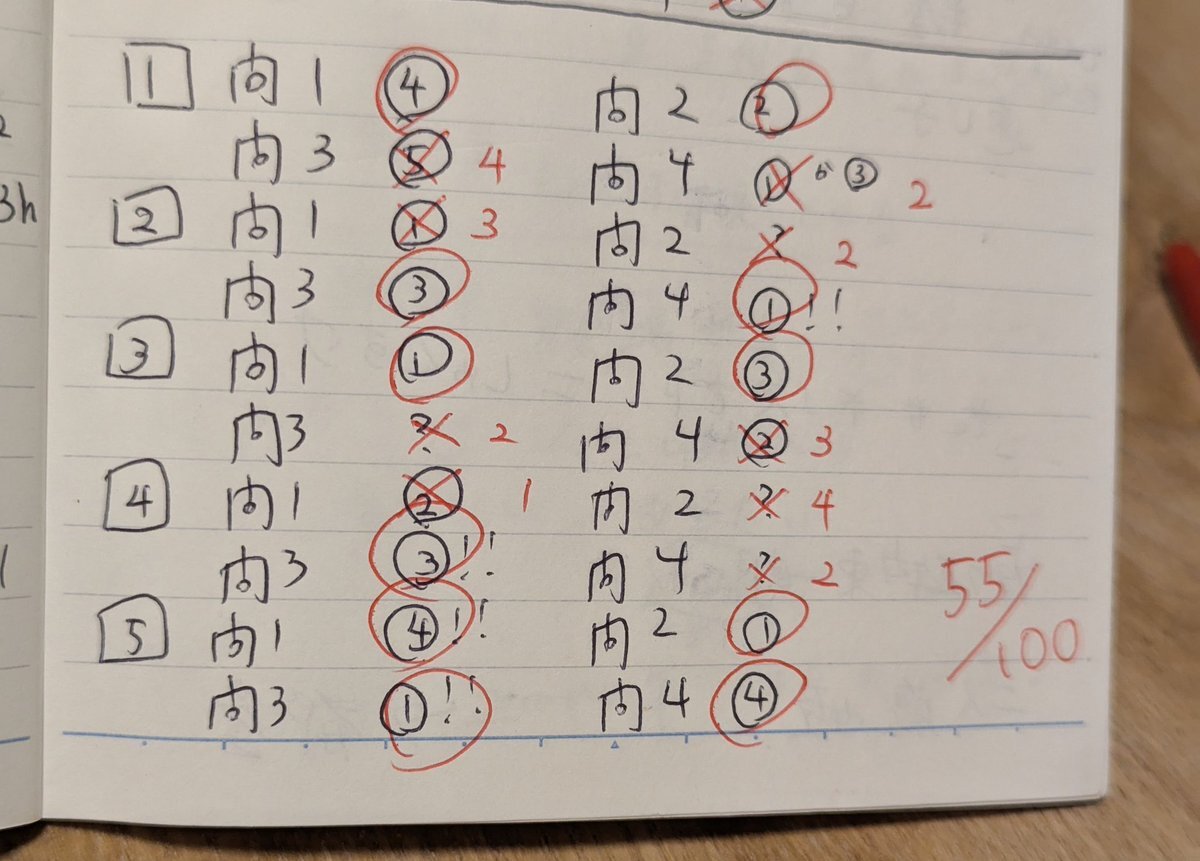 1 問1 ④ 問2 ②
問3 ⑤ 4 問4 ① か ③ 2
2 問1 ① 3 問2 ? 2
問3 ③ 問4 ①!!
3 問1 ① 問2 ③
問3 ? 2 問4 ② 3
4 問1 ② 1 問2 ? 4
問3 ③!! 問4 ? 2
5 問1 ④!! 問2 ①
問3 ①!! 問4 ④
55/100
3h